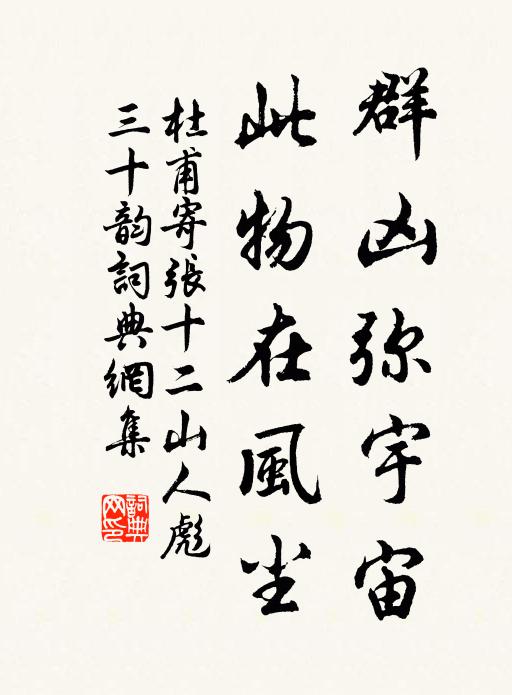 群凶弥宇宙
此物在風尘
杜甫寄張十二山人彪
三十韵詞典網集
詞典
网印